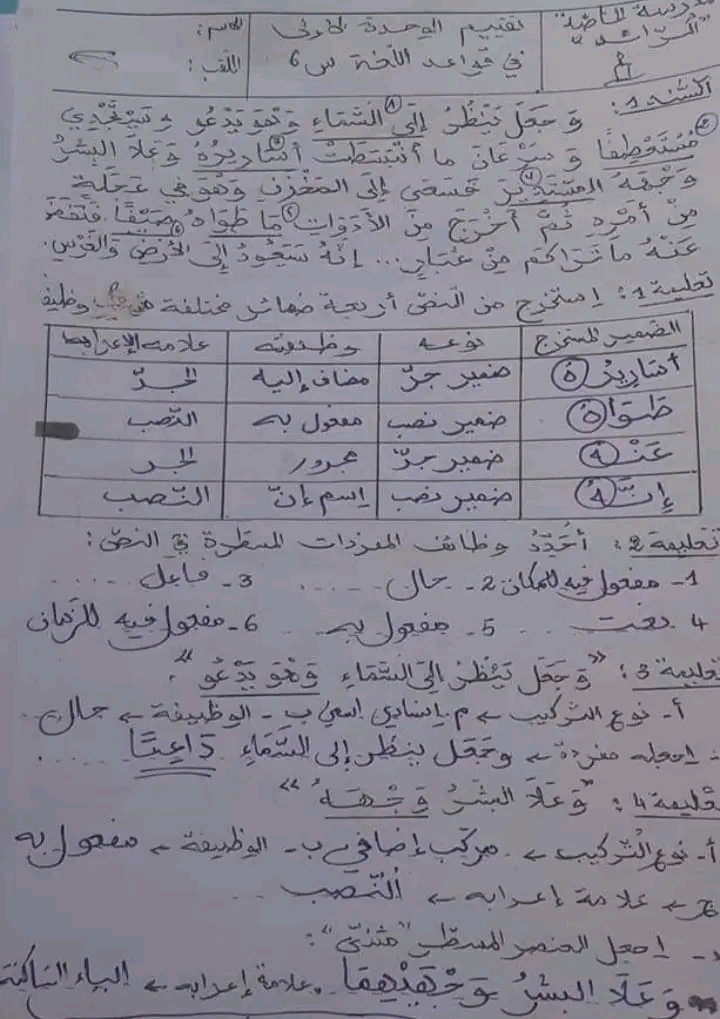 مدرسة الخاصة "الرائد"
تقييم الوحدة الأولى في قواعد اللغة س6
الاسم:
اللقب:
السند 1: وَ جَعَلَ يَنْظُرُ إِلَى السَّمَاءِ وَهْوَ يَدْعُو وَيَسْتَجْدِي
مُسْتَعْطِفًا وَ سَرْعَانَ ما انْبَسَطَتْ أَسَارِيرُهُ وَ عَلَا البِشْرُ
وَجْهَهُ المُسْتَدِيرَ فَسَعَى إِلَى المَخْزَنِ وَهْوَ فِي عَجَلَةٍ
مِنْ أَمْرِهِ ثُمَّ أَخْرَجَ مِنَ الأَدَوَاتِ مَا طَوَاهُ صَيْفًا فَنَفَضَ
عَنْهُ مَا تَرَاكَمَ مِنْ غُبَارٍ... إِنَّهُ سَيَعُودُ إِلَى الأَرْضِ وَالغَرْسِ.
تعليمة 1: استخرج من النص أربعة ضمائر مختلفة وظيفة
الضمير المستخرج نوعه وظيفته علامة الإعراب
أساريرُ(هُ) ضمير جرّ مضاف إليه الجرّ
طَوَا(هُ) ضمير نصب مفعول به النّصب
عَنْـ(ـهُ) ضمير جرّ مجرور الجر
إِنَّـ(ـهُ) ضمير نصب اسم إنّ النّصب
تعليمة 2: أُحَدِّدُ وظائف المفردات المسطرة في النصّ:
1- مفعول فيه للمكان 2- حال ..... 3- فاعل .....
4 نعت ... 5- مفعول به ... 6- مفعول فيه للزمان
تعليمة 3: "وَ جَعَلَ يَنْظُرُ إِلَى السَّمَاءِ وَهْوَ يَدْعُو".
أ- نوع التركيب ← م. إسنادي اسمي ب- الوظيفة ← حال
اجعله مفردة ← وجَعَل ينظر إلى السَّمَاءِ دَاعِيًا .....
تعليمة 4: "وَ عَلَا البِشْرُ وَجْهَهُ"
أ- نوع التركيب ← مركب إضافي ب- الوظيفة ← مفعول به
ج ← علامة إعرابه ← النّصب ...
د- اجعل العنصر المسطّر "مثنّى":
وَ عَلَا البِشْرُ وَجْهَيْهِمَا. علامة إعرابه ← الياء الساكنة